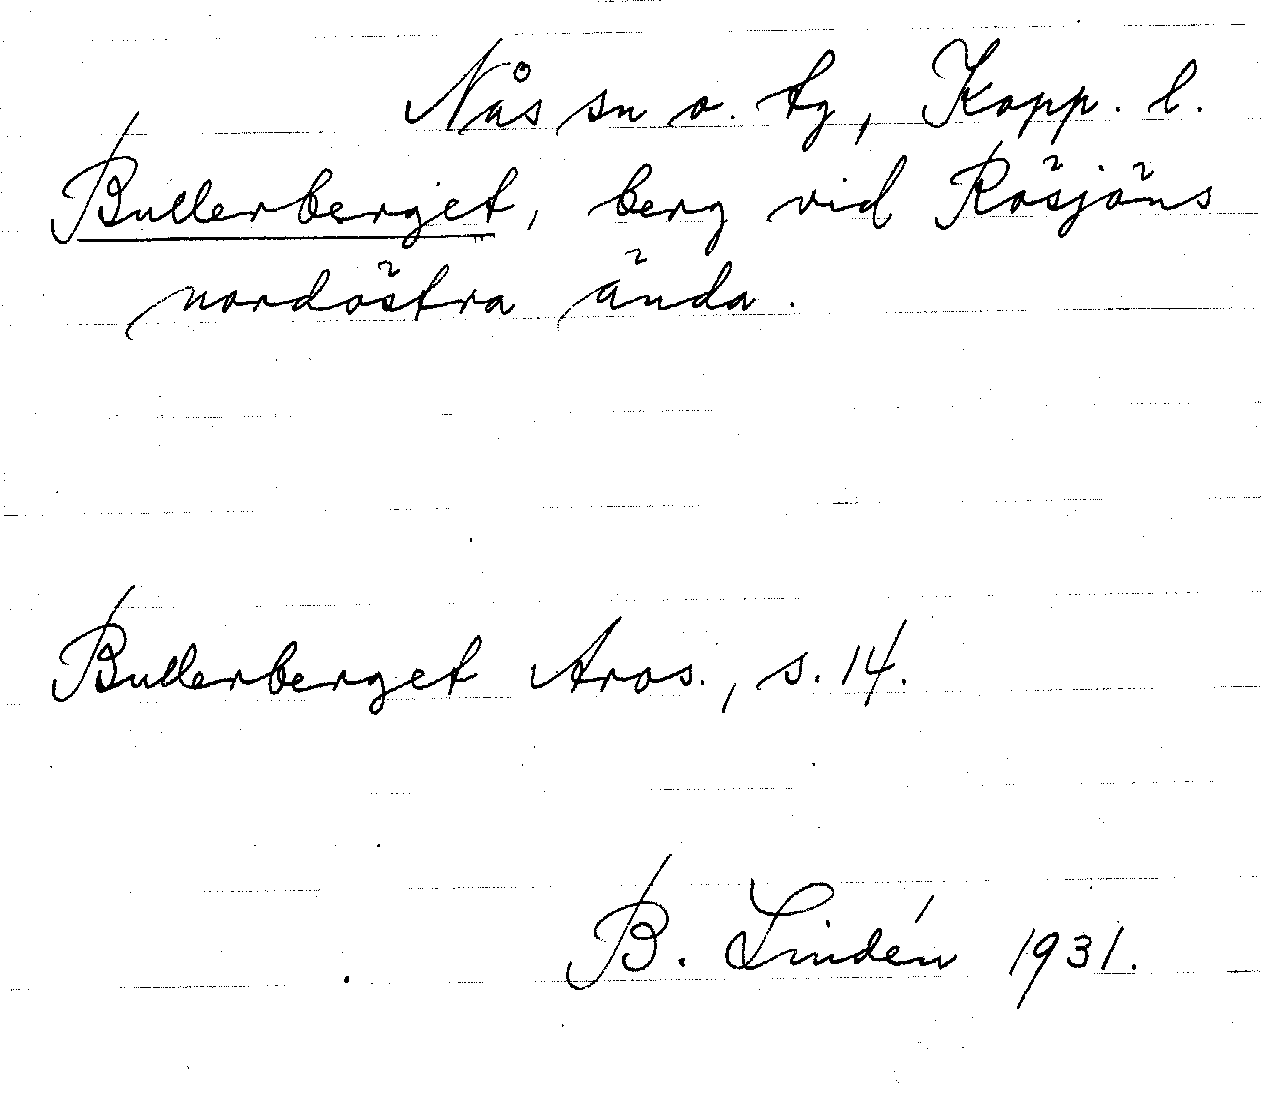 Nås sn o. tg, Kopp. l.
Bullerberget, berg vid Rösjöns
nordöstra ända.
Bullerberget Aros., s. 14.
B. Lindén 1931.